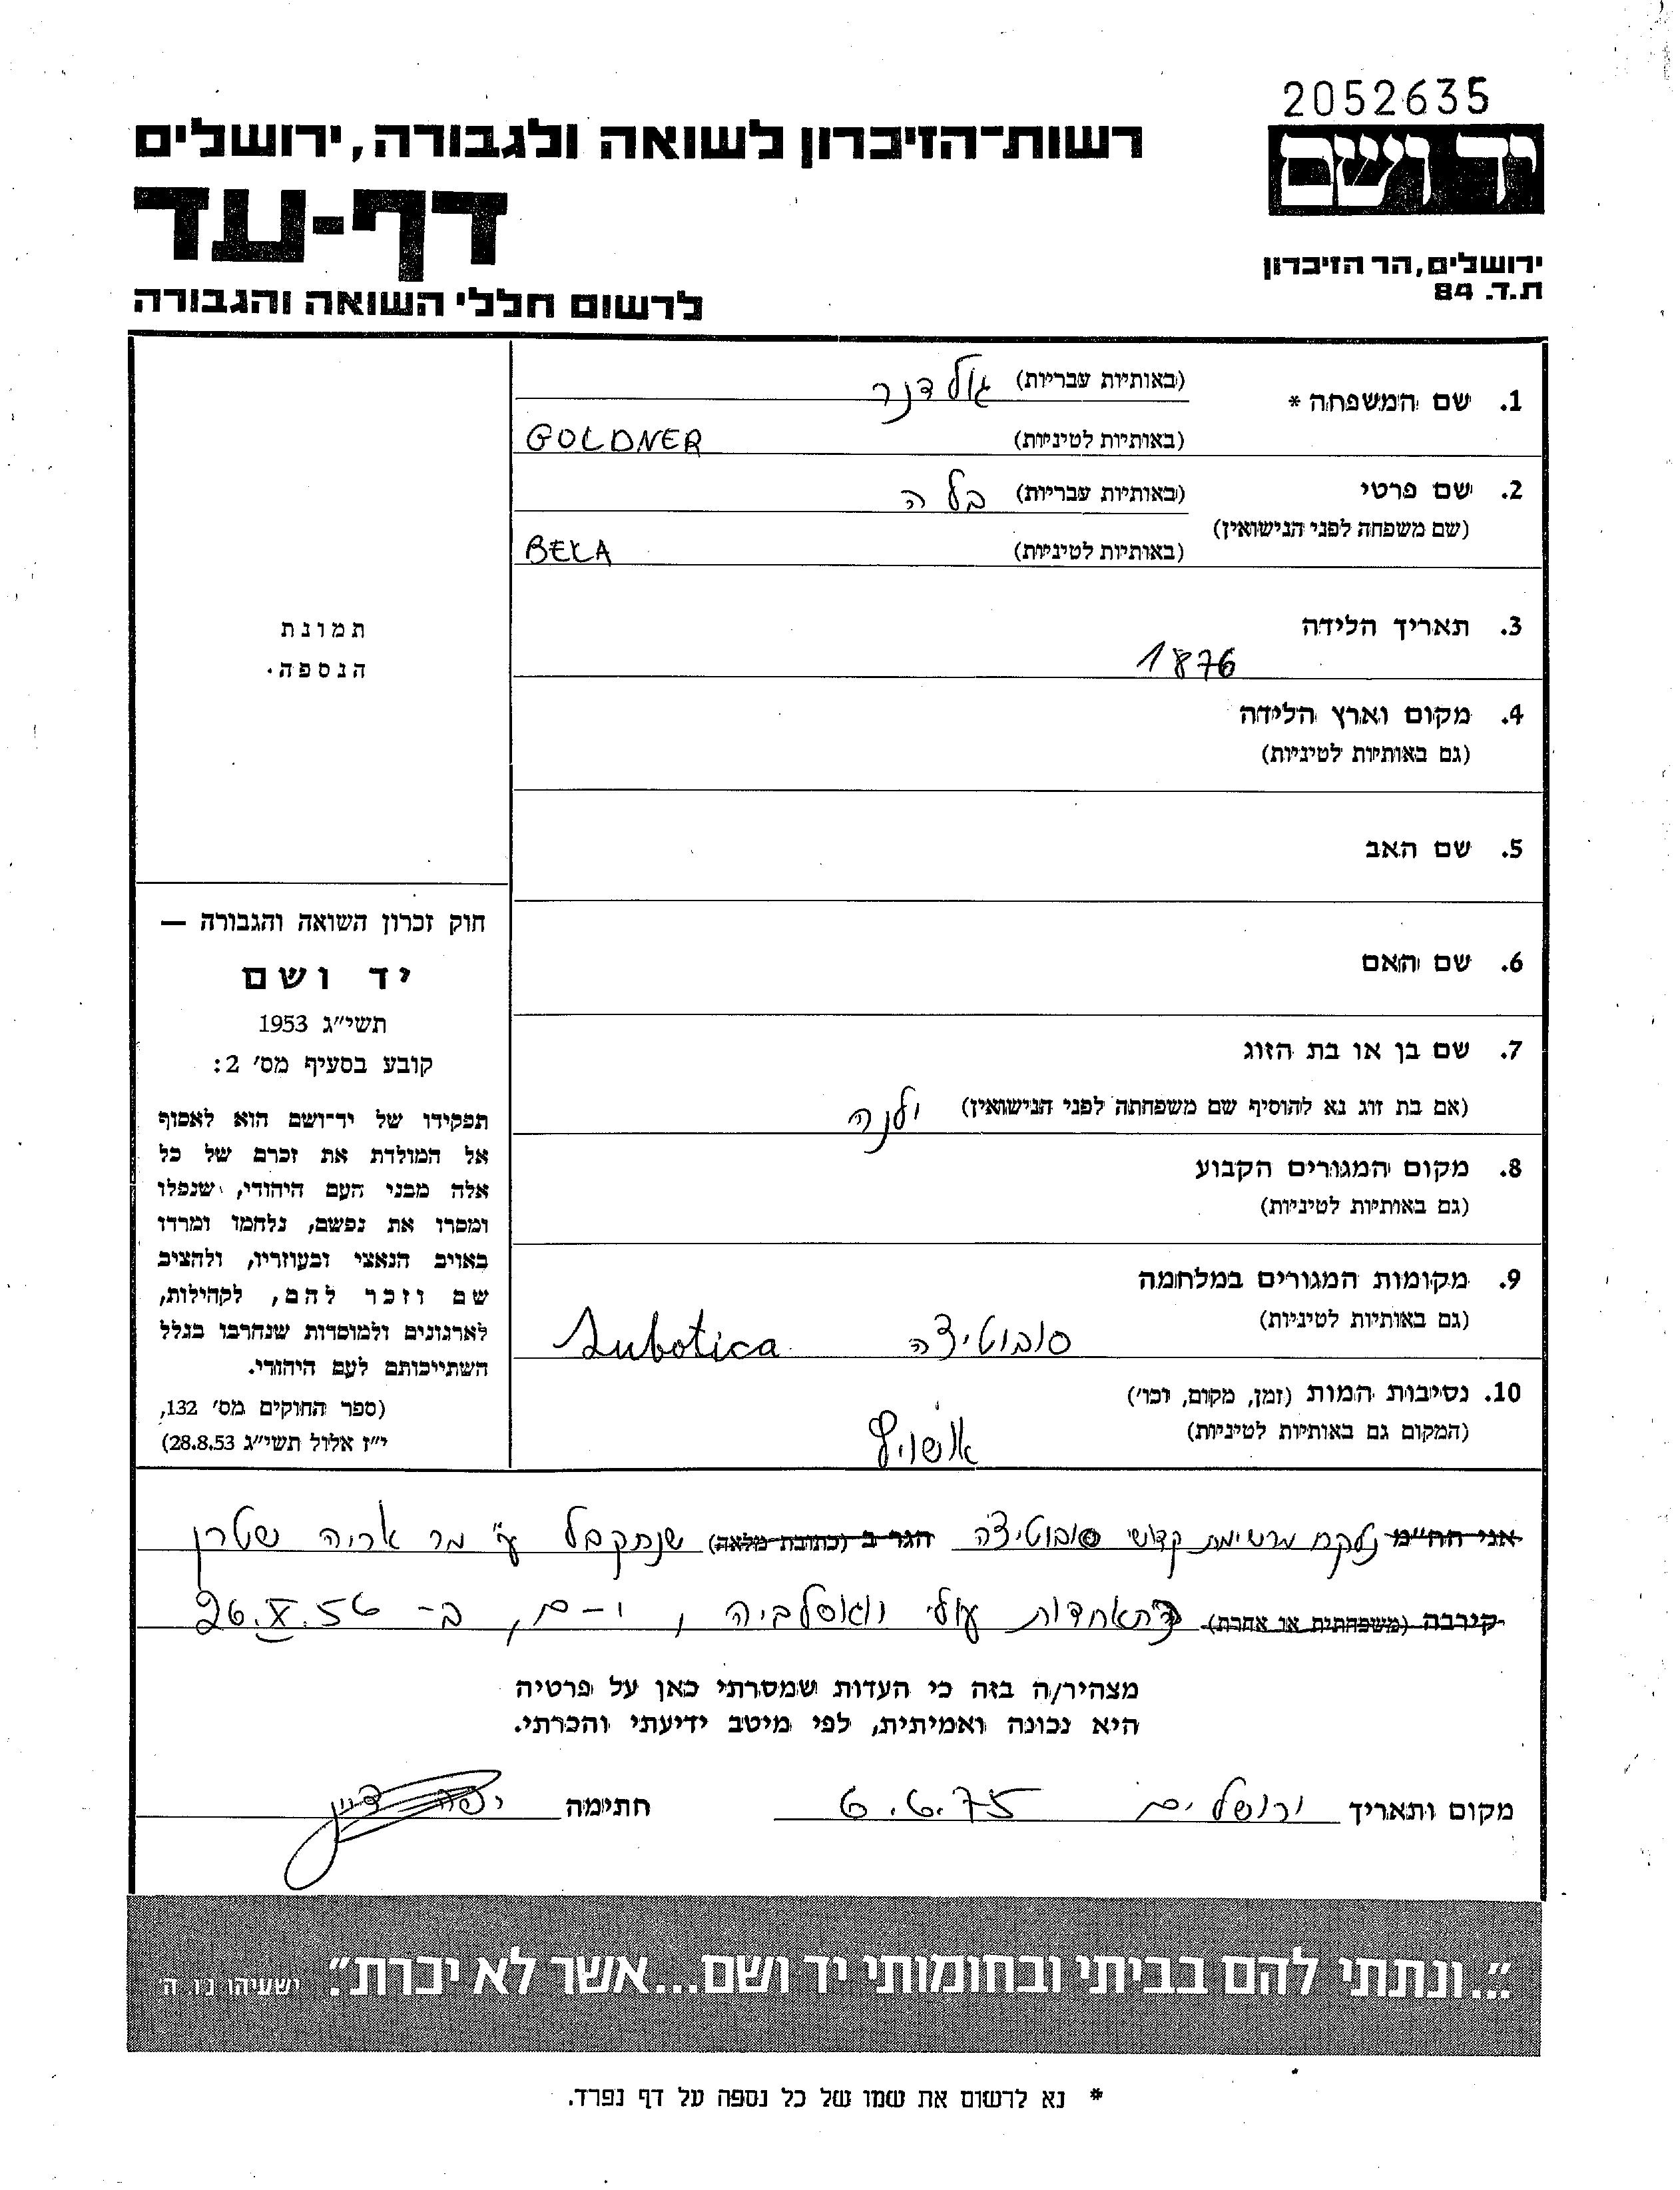 2052635
יד ושם
רשות-הזיכרון לשואה ולגבורה, ירושלים
דף-עד
לרשום חללי השואה והגבורה
ירושלים, הר הזיכרון
ת.ד. 84
1. שם המשפחה *
(באותיות עבריות) גולדנר
(באותיות לטיניות) GOLDNER
2. שם פרטי
(שם משפחה לפני הנישואין)
(באותיות עבריות) בלה
(באותיות לטיניות) BELA
3. תאריך הלידה
1876
4. מקום וארץ הלידה
(גם באותיות לטיניות)
5. שם האב
6. שם האם
7. שם בן או בת הזוג
(אם בת זוג נא להוסיף שם משפחתה לפני הנישואין) ילנה
8. מקום המגורים הקבוע
(גם באותיות לטיניות)
9. מקומות המגורים במלחמה
(גם באותיות לטיניות)
סובוטיצה Subotica
10. נסיבות המות (זמן, מקום, וכו')
(המקום גם באותיות לטיניות)
אושויץ
תמונת
הנספה.
חוק זכרון השואה והגבורה —
יד ושם
תשי"ג 1953
קובע בסעיף מס' 2:
תפקידו של יד-ושם הוא לאסוף
אל המולדת את זכרם של כל
אלה מבני העם היהודי, שנפלו
ומסרו את נפשם, נלחמו ומרדו
באויב הנאצי ובעוזריו, ולהציב
שם וזכר להם, לקהילות,
לארגונים ולמוסדות שנחרבו בגלל
השתייכותם לעם היהודי.
(ספר החוקים מס' 132,
י"ז אלול תשי"ג 28.8.53)
אני הח"מ נלקח מרשימת קדושי סובוטיצה הגר ב (כתובת מלאה) שנתקבל ע"י מר אריה שטרן
קירבה (משפחתית או אחרת) התאחדות עולי יוגוסלביה, י-ם, ב- 26.X.56
מצהיר/ה בזה כי העדות שמסרתי כאן על פרטיה
היא נכונה ואמיתית, לפי מיטב ידיעתי והכרתי.
מקום ותאריך ירושלים 6.6.75 חתימה יפה דיין
"...ונתתי להם בביתי ובחומותי יד ושם...אשר לא יכרת". ישעיהו נו, ה'
* נא לרשום את שמו של כל נספה על דף נפרד.